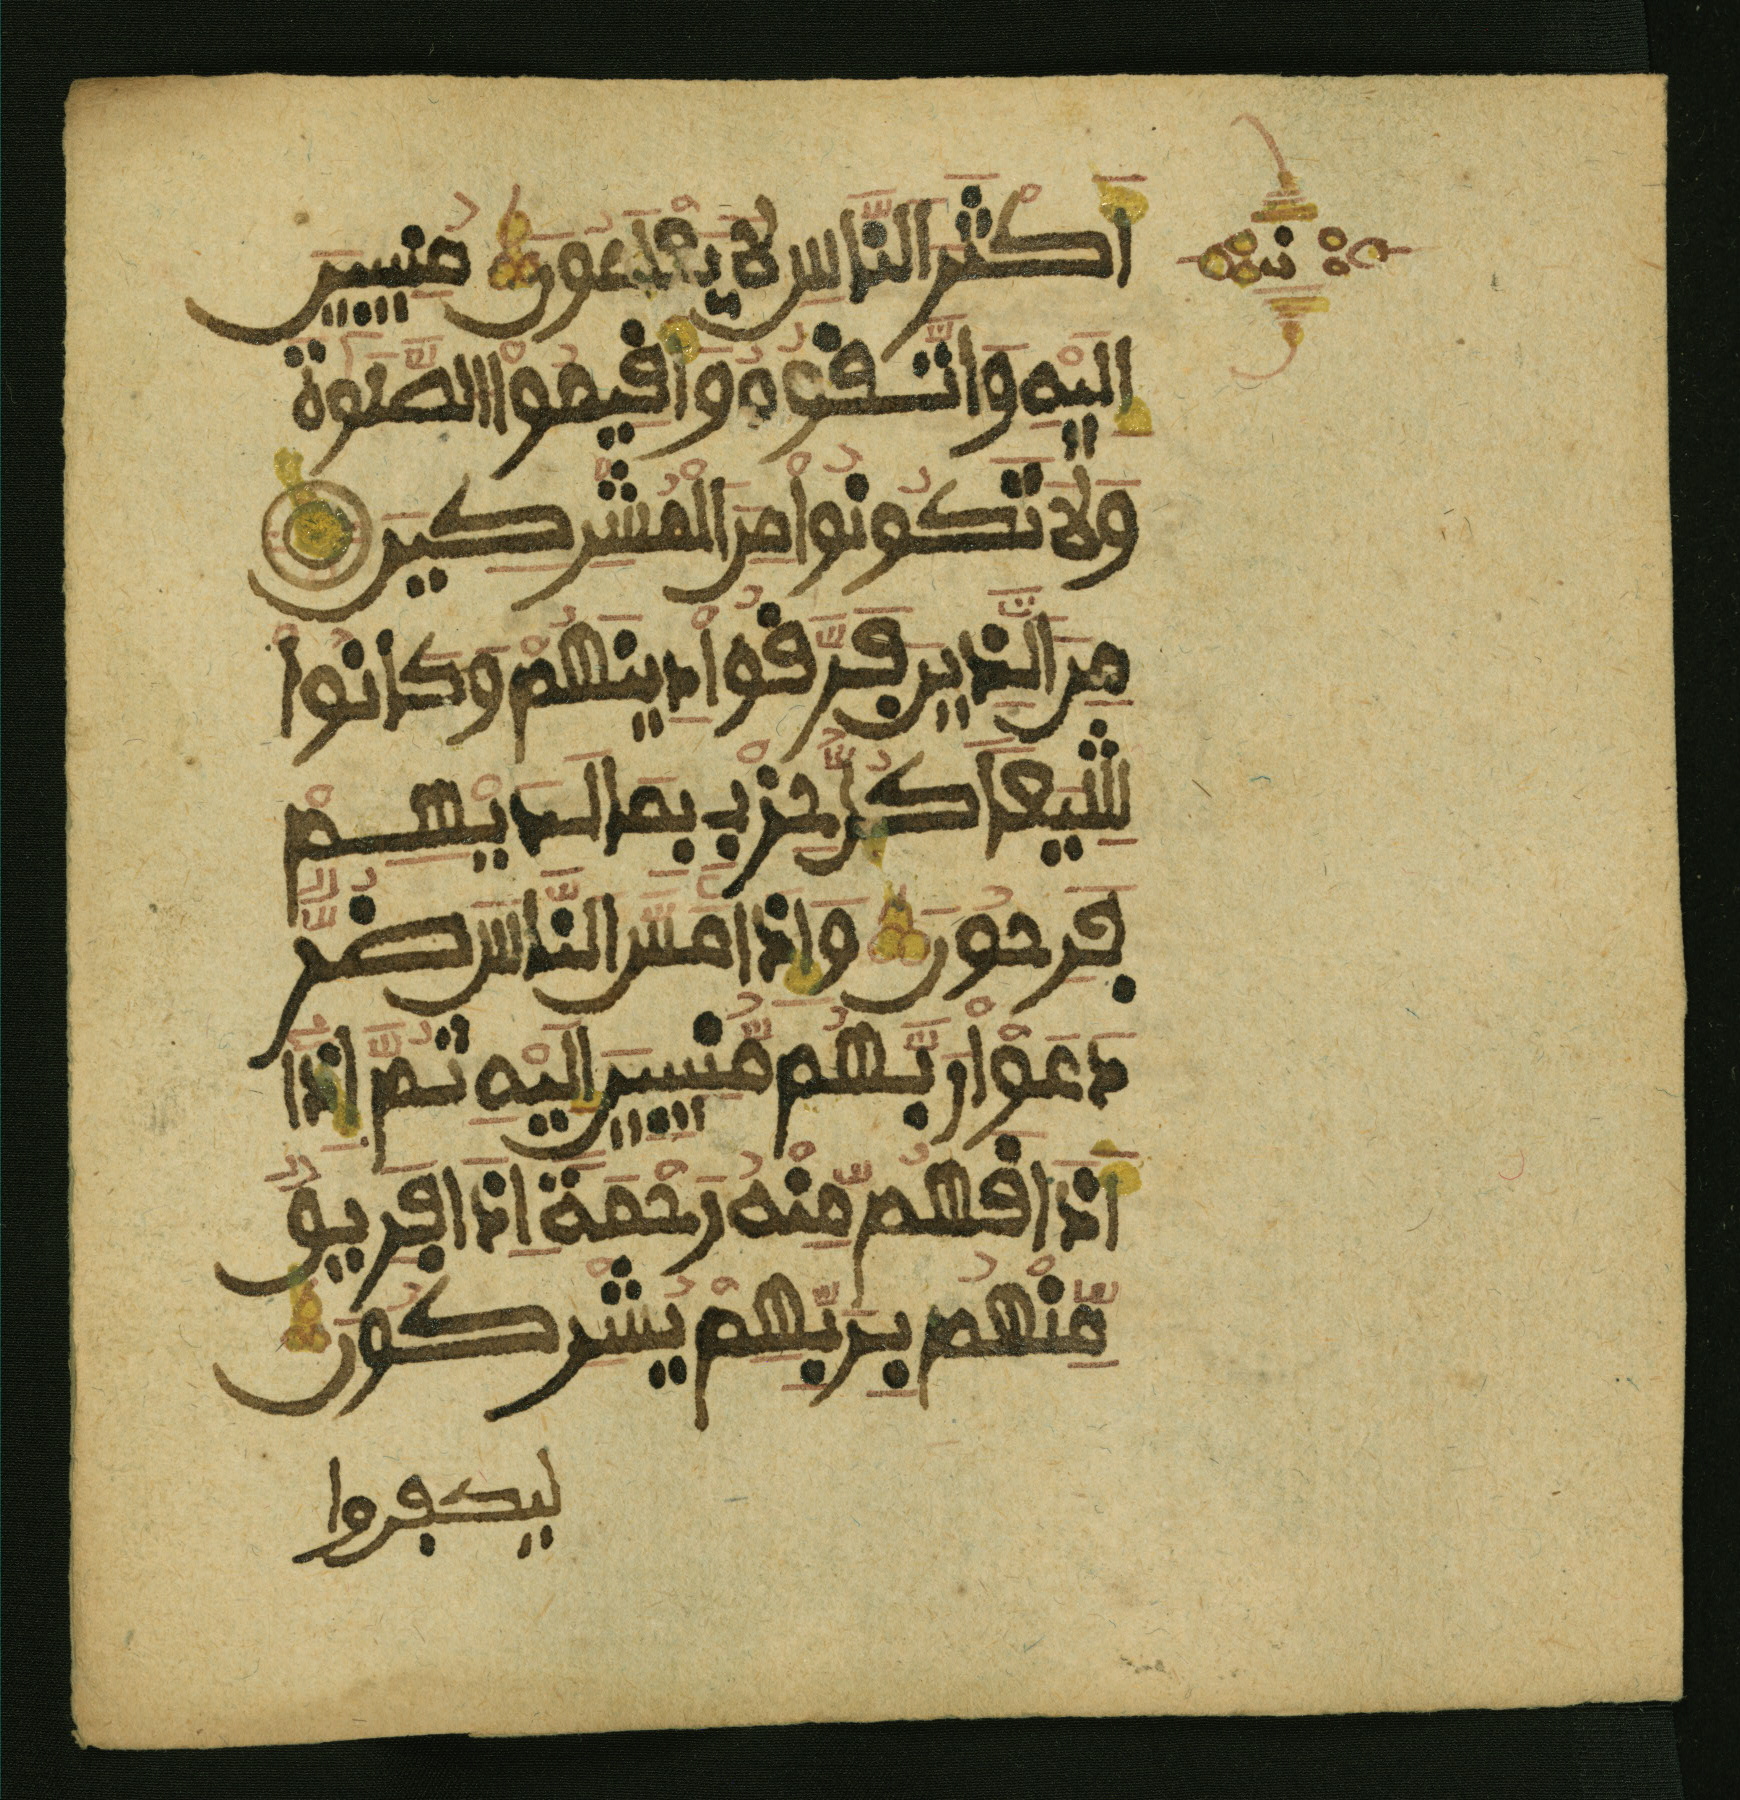 أكثر الناس لا يعلمون منيبين
إليه واتقوه وأقيموا الصلوة
ولا تكونوا من المشركين
من الذين فرقوا دينهم وكانوا
شيعا كل حزب بما لديهم
فرحون وإذا مس الناس ضر
دعوا ربهم منيبين إليه ثم إذا
أذاقهم منه رحمة إذا فريق
منهم بربهم يشركون
ليكفروا